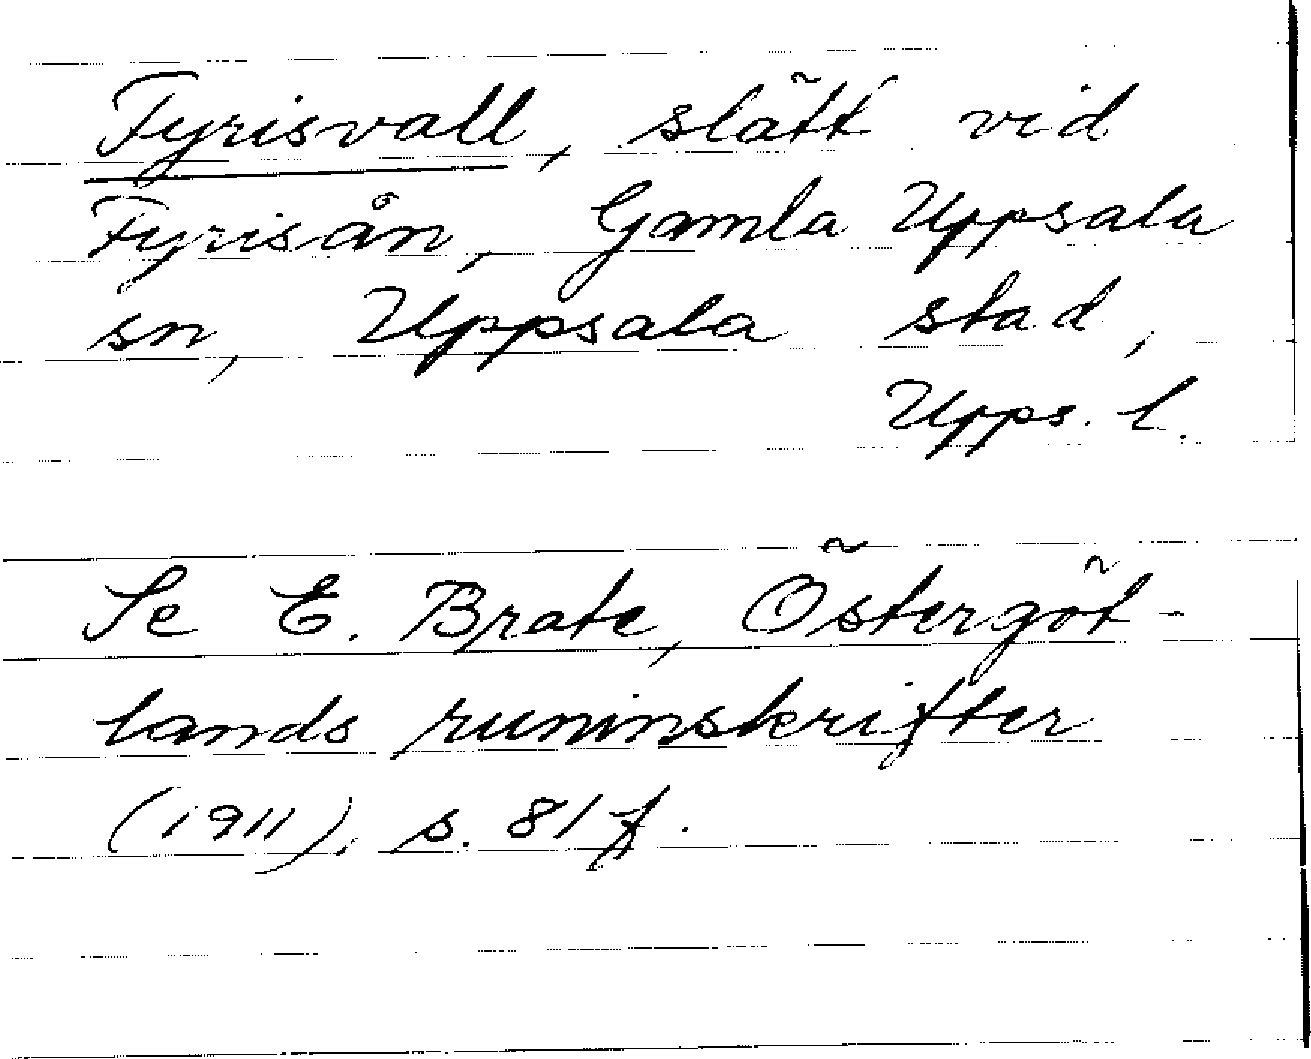 Fyrisvall, slätt vid
Fyrisån, Gamla Uppsala
sn, Uppsala stad,
Upps. l.
Se E. Brate, Östergöt-
lands runinskrifter
(1911), s. 81 f.